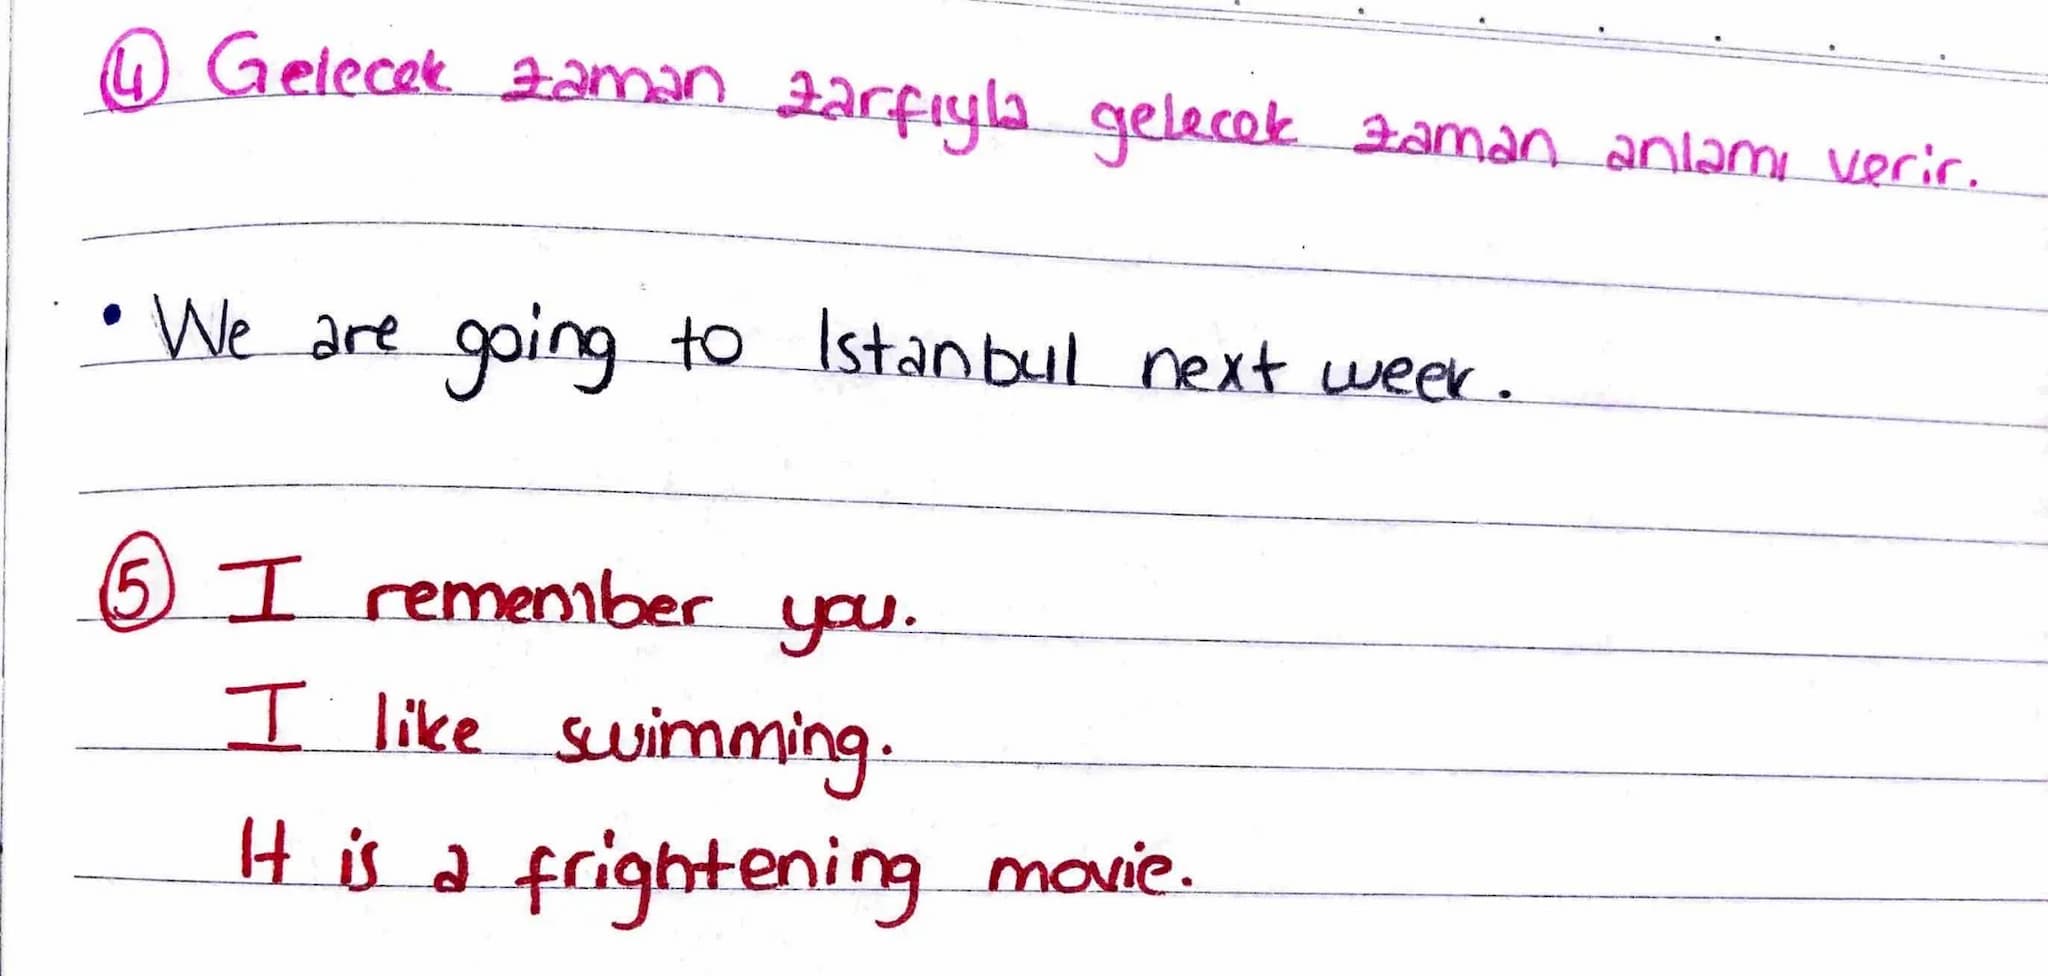 ④ Gelecek zaman zarfıyla gelecek zaman anlamı verir.
• We are going to Istanbul next week.
⑤ I remember you.
I like swimming.
It is a frightening movie.